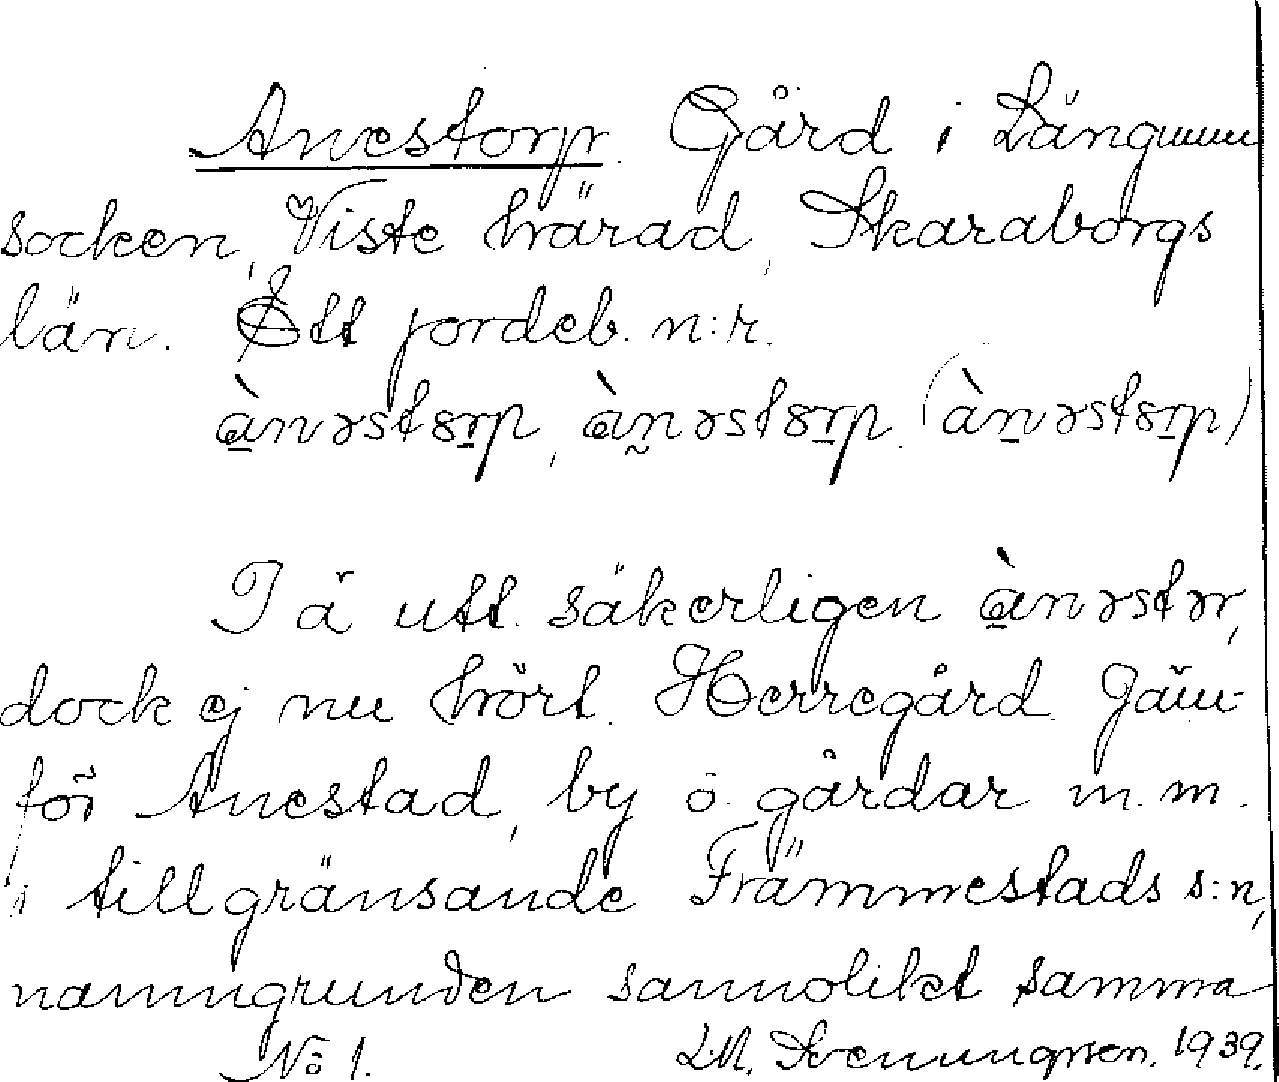 Anestorp. Gård i Längnum
socken, Viste härad, Skaraborgs
län. Ett jordeb. n:r.
ànəstɔrp, àn̰əstɔrp. (àn̠əstɔrp)
I ä utt. säkerligen ànəstər,
dock ej nu hört. Herregård. Jäm-
för Anestad, by o. gårdar m.m.
i tillgränsande Främmestads s:n,
namngrunden sannolikt samma
No 1. Svenungsson. 1939.